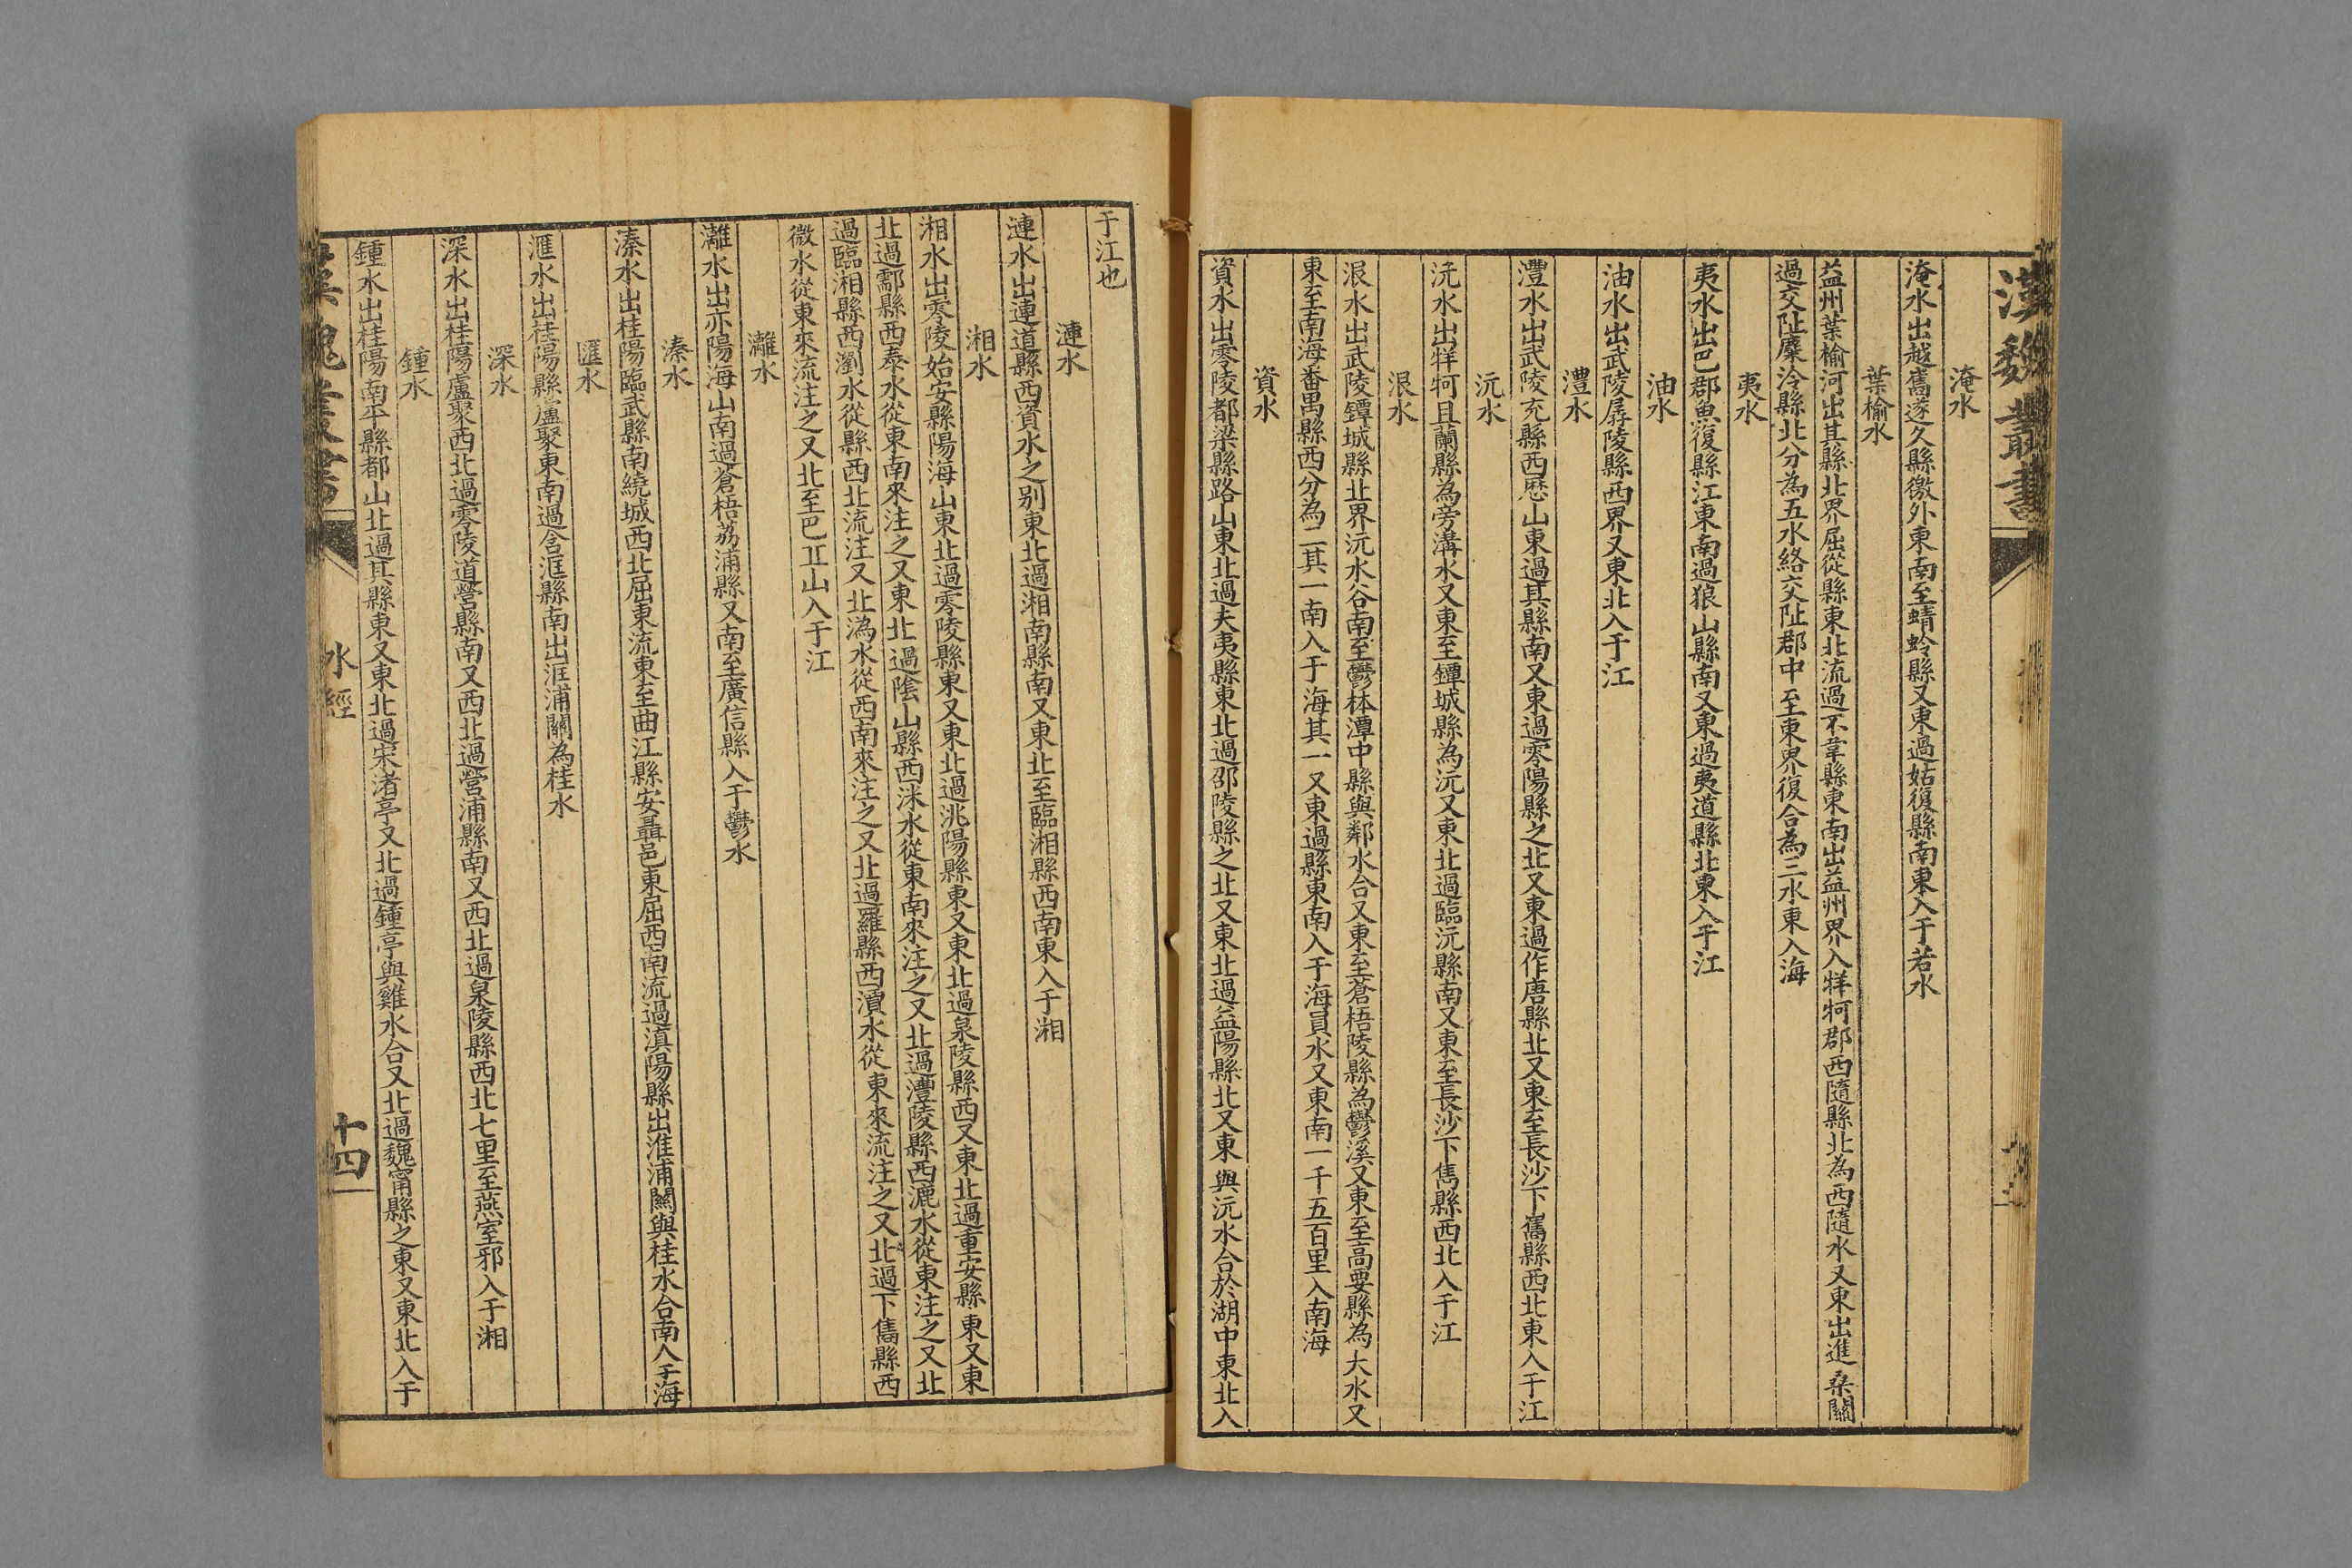 漢魏叢書
淹水
淹水出越嶲遂久縣徼外東南至蜻蛉縣又東過姑復縣南東入于若水
葉榆水
益州葉榆河出其縣北界屈從縣東北流過不韋縣東南出益州界入牂牁郡西隨縣北為西隨水又東出進桑關
過交阯麋泠縣北分為五水絡交阯郡中至東界復合為三水東入海
夷水
夷水出巴郡魚復縣江東南過狼山縣南又東過夷道縣北東入于江
油水
油水出武陵孱陵縣西界又東北入于江
澧水
澧水出武陵充縣西歷山東過其縣南又東過零陽縣之北又東過作唐縣北又東至長沙下嶲縣西北東入于江
沅水
沅水出牂牁且蘭縣為旁溝水又東至鐔城縣為沅又東北過臨沅縣南又東至長沙下雋縣西北入于江
泿水
泿水出武陵鐔城縣北界沅水谷南至鬱林潭中縣與鄰水合又東至蒼梧陵縣為鬱溪又東至高要縣為大水又
東至南海番禺縣西分為二其一南入于海其一又東過縣東南入于海員水又東南一千五百里入南海
資水
資水出零陵都梁縣路山東北過夫夷縣東北過邵陵縣之北又東北過益陽縣北又東與沅水合於湖中東北入
于江也
漣水
漣水出連道縣西資水之別東北過湘南縣南又東北至臨湘縣西南東入于湘
湘水
湘水出零陵始安縣陽海山東北過零陵縣東又東北過洮陽縣東又東北過泉陵縣西又東北過重安縣東又東
北過酃縣西泰水從東南來注之又東北過陰山縣西洣水從東南來注之又北過澧陵縣西漉水從東注之又北
過臨湘縣西瀏水從縣西北流注又北溈水從西南來注之又北過羅縣西濆水從東來流注之又北過下雋縣西
微水從東來流注之又北至巴丘山入于江
灕水
灕水出亦陽海山南過蒼梧荔浦縣又南至廣信縣入于鬱水
溱水
溱水出桂陽臨武縣南繞城西北屈東流東至曲江縣安聶邑東屈西南流過滇陽縣出淮浦關與桂水合南入于海
匯水
滙水出桂陽縣盧聚東南過含洭縣南出洭浦關為桂水
深水
深水出桂陽盧聚西北過零陵道營縣南又西北過營浦縣南又西北過泉陵縣西北七里至燕室邪入于湘
鍾水
鍾水出桂陽南平縣都山北過其縣東又東北過宋渚亭又北過鍾亭與雞水合又北過魏甯縣之東又東北入于
水經
十四